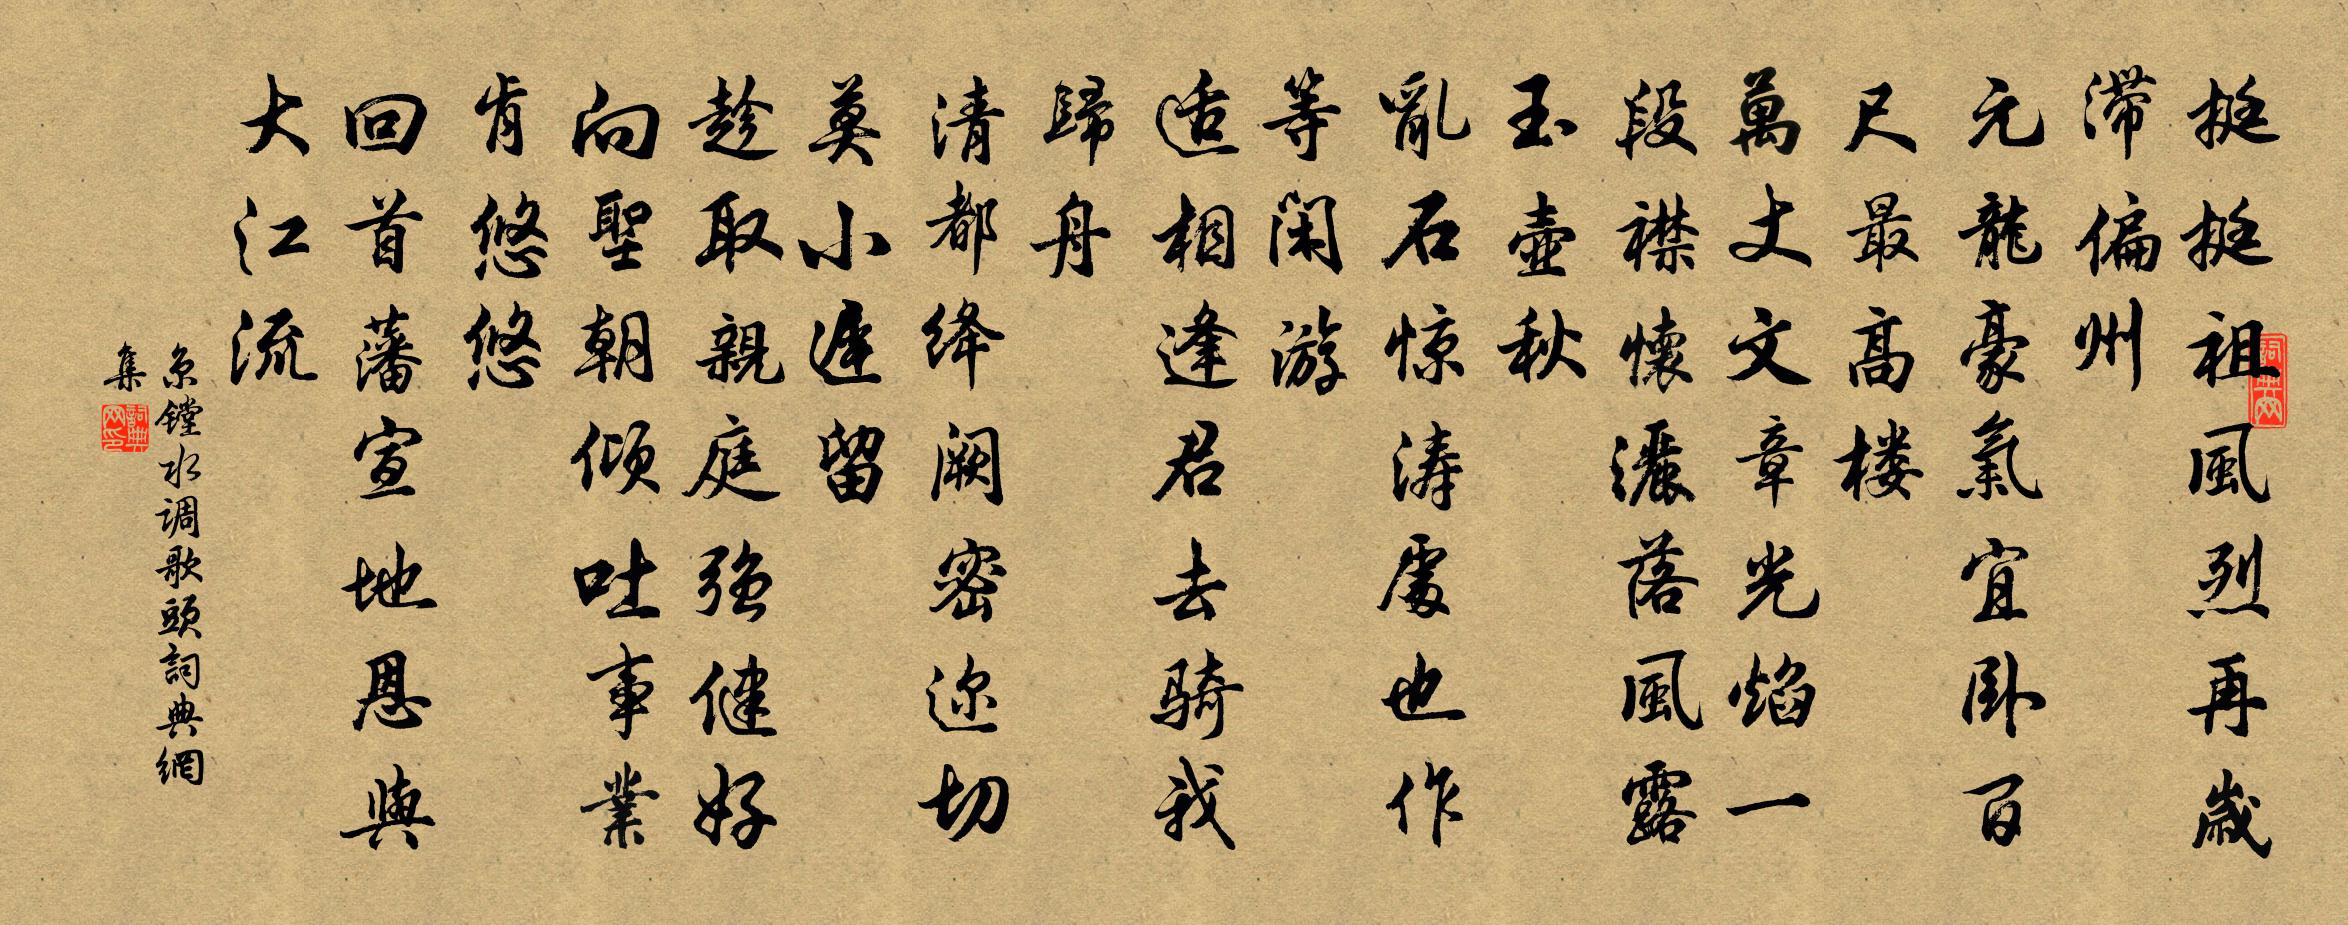 挺挺祖風烈再歲
滯偏州
元龍豪氣宜卧百
尺最高楼
萬丈文章光焰一
段襟懷灑落風露
玉壺秋
亂石惊涛處也作
等闲游
适相逢君去骑我
歸舟
清都绛阙密迩切
莫小遲留
趁取親庭强健好
向聖朝倾吐事業
肯悠悠
回首藩宣地恩與
大江流
京镗水调歌頭詞典網
集
詞典网
詞典网印